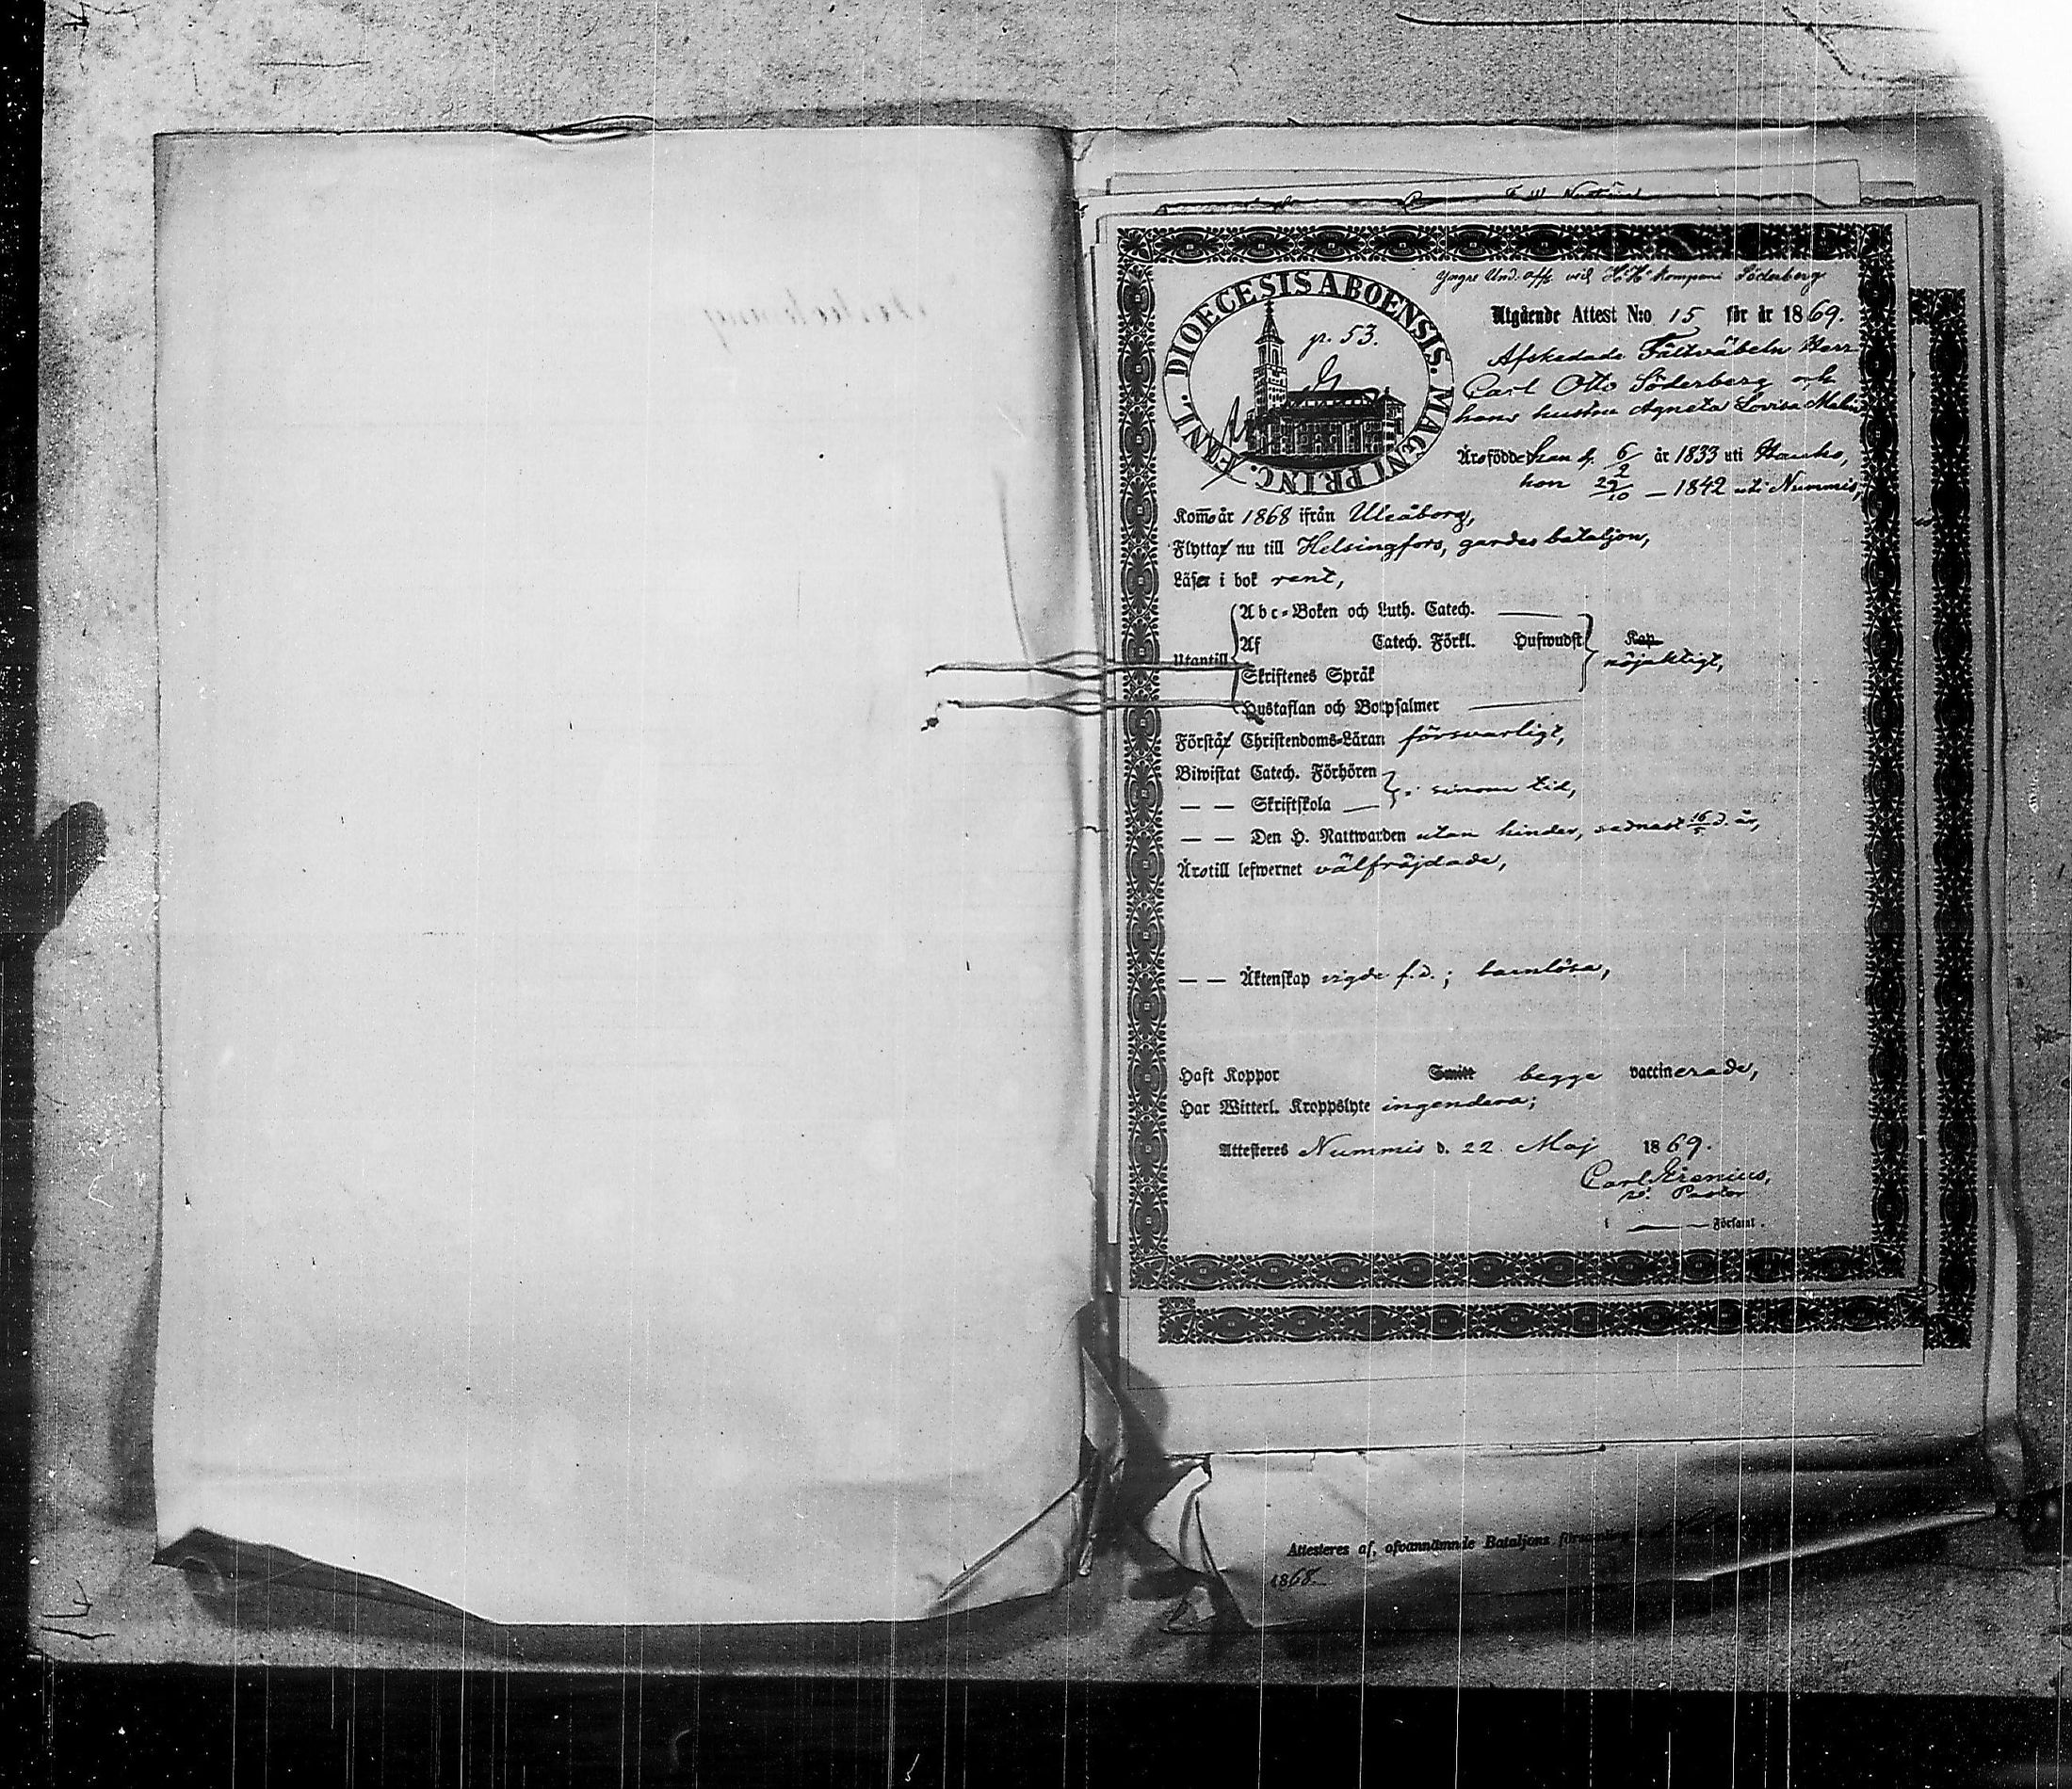 Yngre Und. off. vid H. H. Kompani Söderberg
DIOECESIS ABOENSIS. MAGNI PRINC. FINL.
p. 53.
Utgående Attest N:o 15 för år 1869.
Afskedade Fältväbeln Herr
Carl Otto Söderberg och
hans hustru Agneta Lovisa Malm
Äro födde han d. 6/2 år 1833 uti Hauho,
hon 29/10 — 1842 uti Nummis,
Kommo år 1868 ifrån Uleåborg,
Flytta nu till Helsingfors, gardesbataljon,
Läsa i bok rent,
Utantill
Abc-Boken och Luth. Catech. ——
Af Catech. Förkl. Hufwudst Kap
nöjaktigt,
Skriftenes Språk
Hustaflan och Botpsalmer ——
Förstå Christendoms-Läran försvarligt,
Biwistat Catech. Förhören
— — Skriftskola — i sinom tid,
— — Den H. Nattwarden utan hinder, sednast 16/5 d. år,
Äro till lefwernet välfräjdade,
— — Äktenskap vigde f.d.; barnlösa,
Haft Koppor Smitt begge vaccinerade,
Har Witterl. Kroppslyte ingendera;
Attesteres Nummis d. 22 Maj 1869.
Carl Sirenius,
v. Pastor
i —— Församl.
Attesteres af, ofvannämnde Bataljons
1868